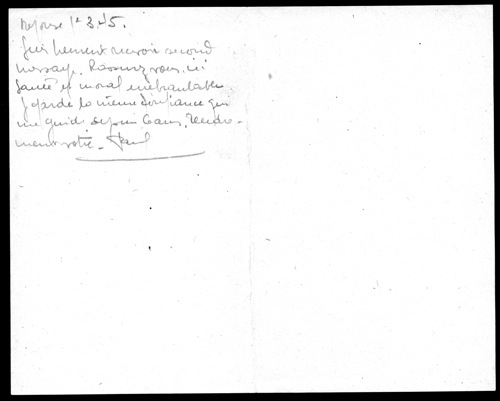 Réponse 1º 3.45.
Suis heureux recevoir second
message. Rassurez vous, ici
santé et moral inébranlables
Je garde la même confiance qui
me guide depuis 6 ans. Tendre-
ment votre - Paul